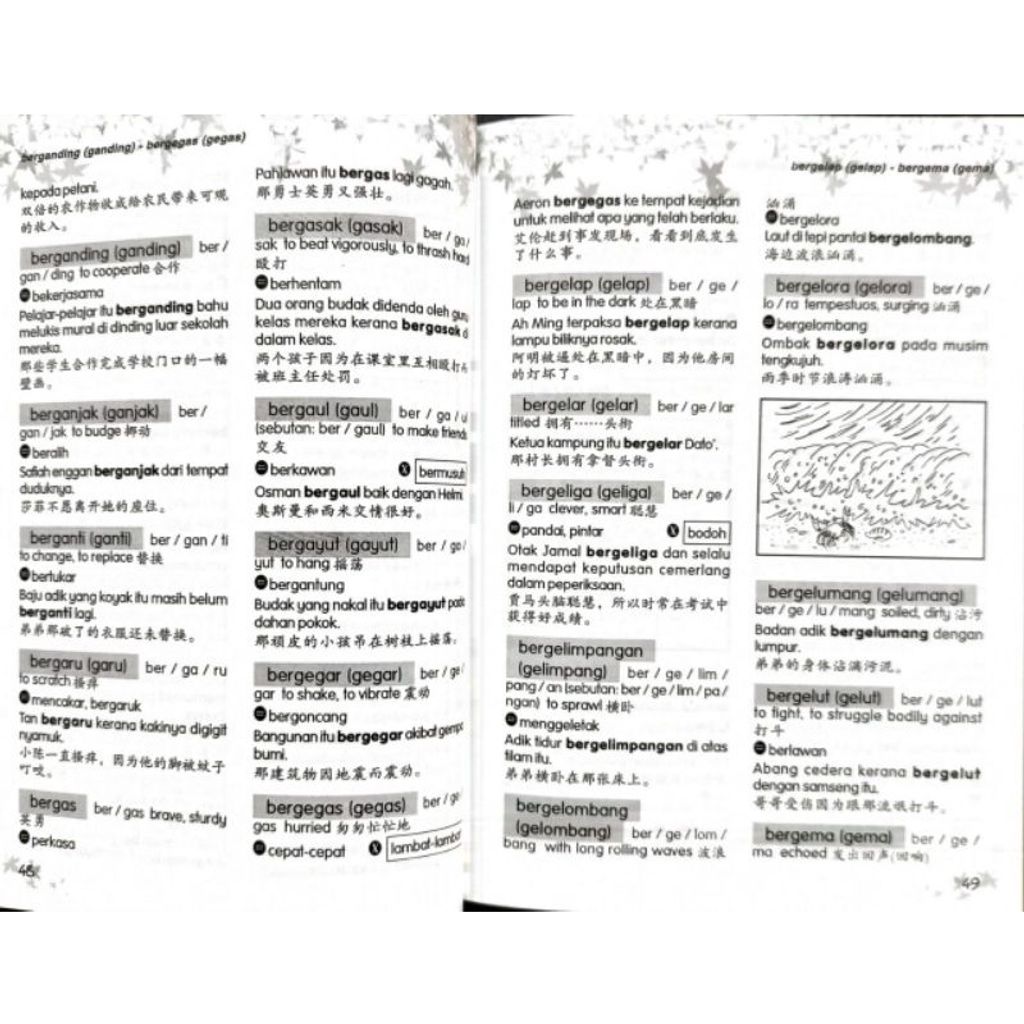 berganding (ganding) - bergegas (gegas)
kepada petani.
双倍的农作物收成给农民带来可观
的收入。
berganding (ganding) ber /
gan / ding to cooperate 合作
bekerjasama
Pelajar-pelajar itu berganding bahu
melukis mural di dinding luar sekolah
mereka.
那些学生合作完成学校门口的一幅
壁画。
berganjak (ganjak) ber /
gan / jak to budge 挪动
beralih
Safiah enggan berganjak dari tempat
duduknya.
莎菲不愿离开她的座位。
berganti (ganti) ber / gan / ti
to change, to replace 替换
bertukar
Baju adik yang koyak itu masih belum
berganti lagi.
弟弟那破了的衣服还未替换。
bergaru (garu) ber / ga / ru
to scratch 搔痒
mencakar, bergaruk
Tan bergaru kerana kakinya digigit
nyamuk.
小陈一直搔痒，因为他的脚被蚊子
叮咬。
bergas ber / gas brave, sturdy
英勇
perkasa
48
Pahlawan itu bergas lagi gagah.
那勇士英勇又强壮。
bergasak (gasak) ber / ga /
sak to beat vigorously, to thrash hard
殴打
berhentam
Dua orang budak didenda oleh guru
kelas mereka kerana bergasak di
dalam kelas.
两个孩子因为在课室里互相殴打
被班主任处罚。
bergaul (gaul) ber / ga / ul
(sebutan: ber / gaul) to make friends
交友
berkawan X bermusuh
Osman bergaul baik dengan Helmi.
奥斯曼和西米交情很好。
bergayut (gayut) ber / ga /
yut to hang 摇荡
bergantung
Budak yang nakal itu bergayut pada
dahan pokok.
那顽皮的小孩吊在树枝上摇荡。
bergegar (gegar) ber / ge /
gar to shake, to vibrate 震动
bergoncang
Bangunan itu bergegar akibat gempa
bumi.
那建筑物因地震而震动。
bergegas (gegas) ber / ge /
gas hurried 匆匆忙忙地
cepat-cepat X lambat-lambat
bergelap (gelap) - bergema (gema)
Aeron bergegas ke tempat kejadian
untuk melihat apa yang telah berlaku.
艾伦赶到事发现场，看看到底发生
了什么事。
bergelap (gelap) ber / ge /
lap to be in the dark 处在黑暗
Ah Ming terpaksa bergelap kerana
lampu biliknya rosak.
阿明被逼处在黑暗中，因为他房间
的灯坏了。
bergelar (gelar) ber / ge / lar
titled 拥有……头衔
Ketua kampung itu bergelar Dato'.
那村长拥有拿督头衔。
bergeliga (geliga) ber / ge /
li / ga clever, smart 聪慧
pandai, pintar X bodoh
Otak Jamal bergeliga dan selalu
mendapat keputusan cemerlang
dalam peperiksaan.
贾马头脑聪慧，所以时常在考试中
获得好成绩。
bergelimpangan
(gelimpang) ber / ge / lim /
pang / an (sebutan: ber / ge / lim / pa /
ngan) to sprawl 横卧
menggeletak
Adik tidur bergelimpangan di atas
tilam itu.
弟弟横卧在那张床上。
bergelombang
(gelombang) ber / ge / lom /
bang with long rolling waves 波浪
汹涌
bergelora
Laut di tepi pantai bergelombang.
海边波浪汹涌。
bergelora (gelora) ber / ge /
lo / ra tempestuos, surging 汹涌
bergelombang
Ombak bergelora pada musim
tengkujuh.
雨季时节浪涛汹涌。
bergelumang (gelumang)
ber / ge / lu / mang soiled, dirty 沾污
Badan adik bergelumang dengan
lumpur.
弟弟的身体沾满污泥。
bergelut (gelut) ber / ge / lut
to fight, to struggle bodily against
打斗
berlawan
Abang cedera kerana bergelut
dengan samseng itu.
哥哥受伤因为跟那流氓打斗。
bergema (gema) ber / ge /
ma echoed 发出回声(回响)
49